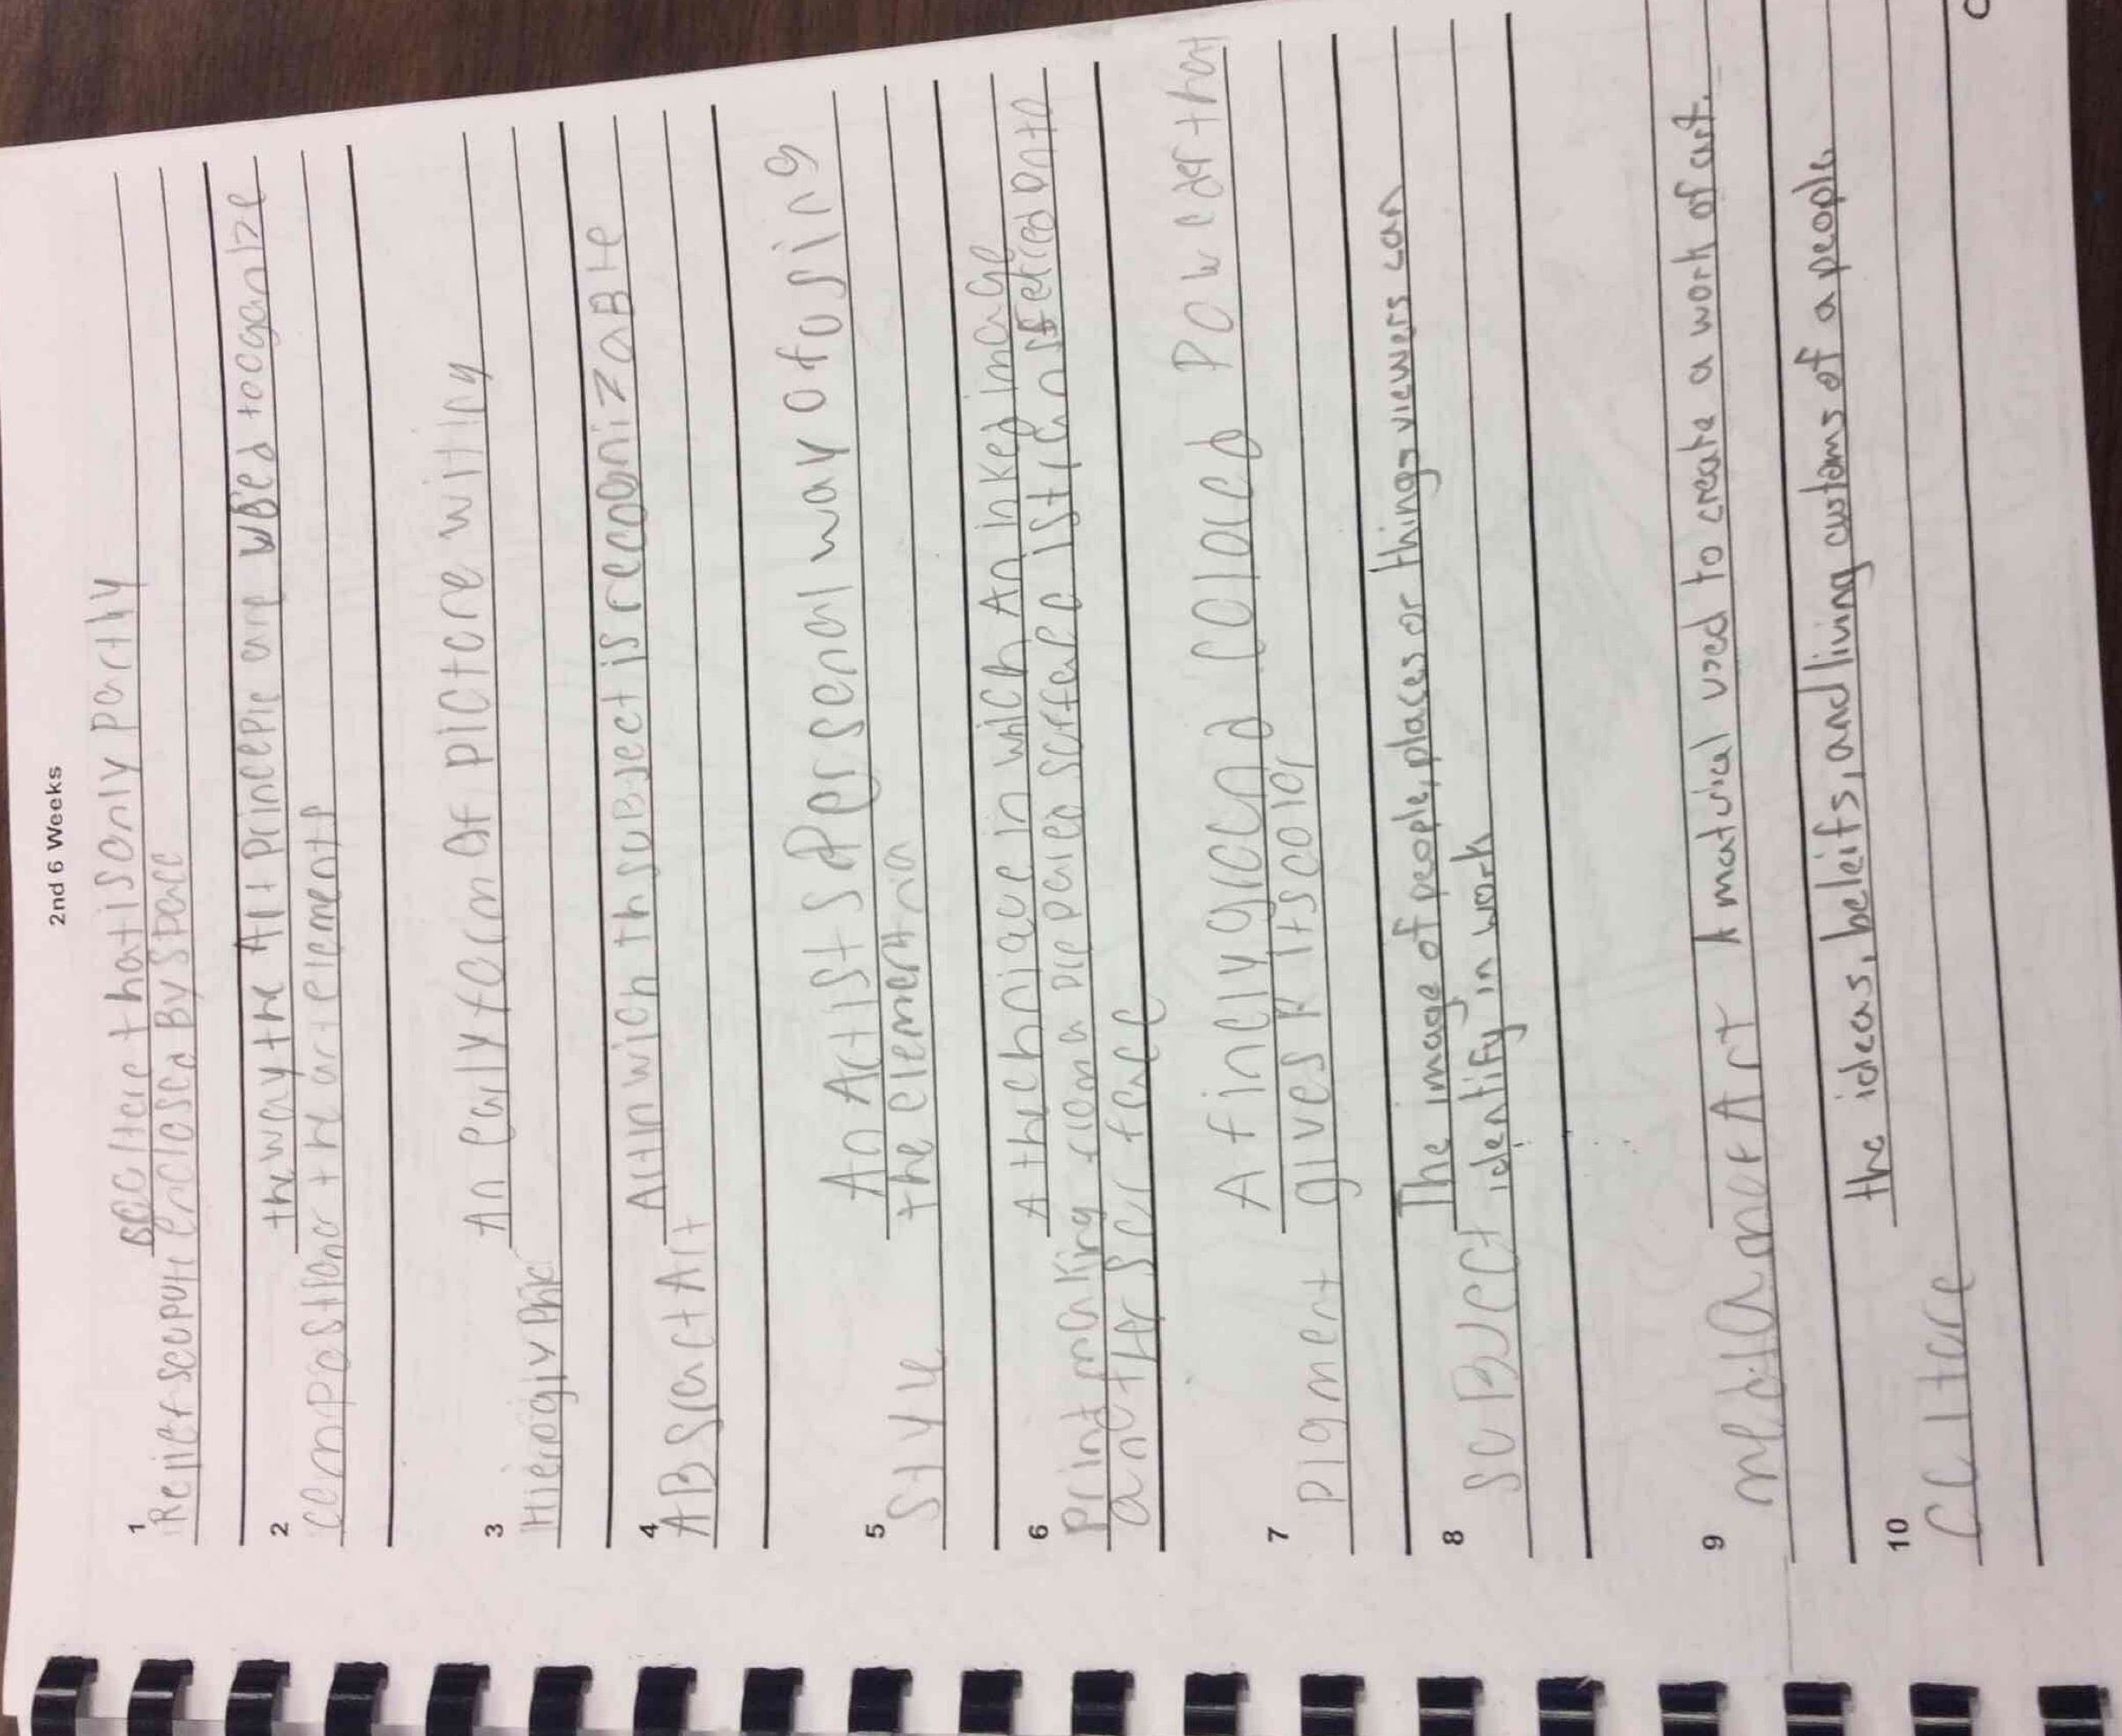 2nd 6 Weeks
1
scultere that is only partly
Relief scupute enclosed By space
2
the way the Art princeple are used to organize
compostion the art elements
3
An early form of picture writing
Hieroglyphic
4
Art in wich th subject is recognizable
ABsract Art
5
An Artist s personal way of using
Style the elements
6
A technique in which An inked image
Print making from a prepared surface is transfered onto
another surface
7
A finely ground colored powder that
Pigment gives it its color
8
The image of people, places or things viewers can
suBject identify in work
9
A material used to create a work of art.
media
10
the ideas, beleifs, and living customs of a people.
Culture